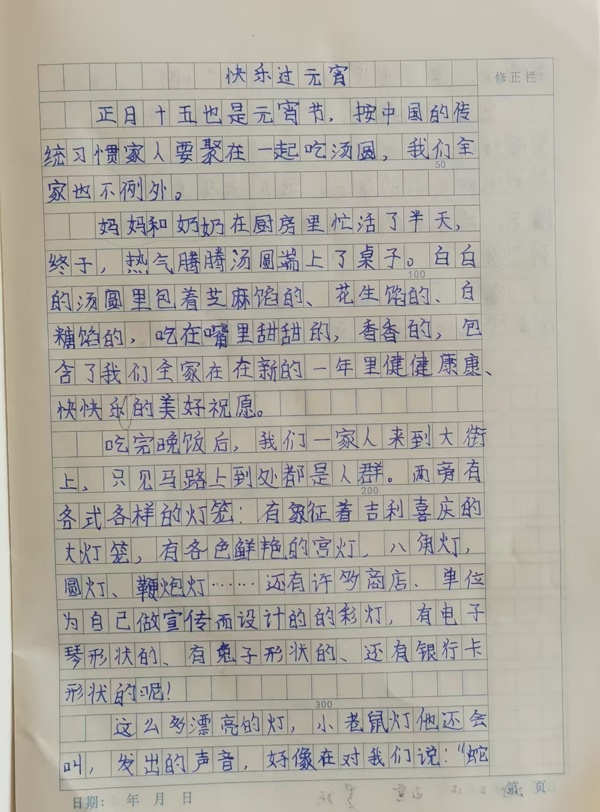 快乐过元宵
修正栏
正月十五也是元宵节，按中国的传
统习惯家人要聚在一起吃汤圆，我们全
50
家也不例外。
妈妈和奶奶在厨房里忙活了半天，
终于，热气腾腾汤圆端上了桌子。白白
100
的汤圆里包着芝麻馅的、花生馅的、白
糖馅的，吃在嘴里甜甜的，香香的，包
含了我们全家在在新的一年里健健康康、
快快乐的美好祝愿。
吃完晚饭后，我们一家人来到大街
上，只见马路上到处都是人群。两旁有
200
各式各样的灯笼：有象征着吉利喜庆的
大灯笼，有各色鲜艳的宫灯，八角灯，
圆灯、鞭炮灯……还有许多商店、单位
为自己做宣传而设计的的彩灯，有电子
琴形状的、有兔子形状的、还有银行卡
形状的呢！
300
这么多漂亮的灯，小老鼠灯他还会
叫，发出的声音，好像在对我们说：“蛇
日期： 年 月 日
第 页